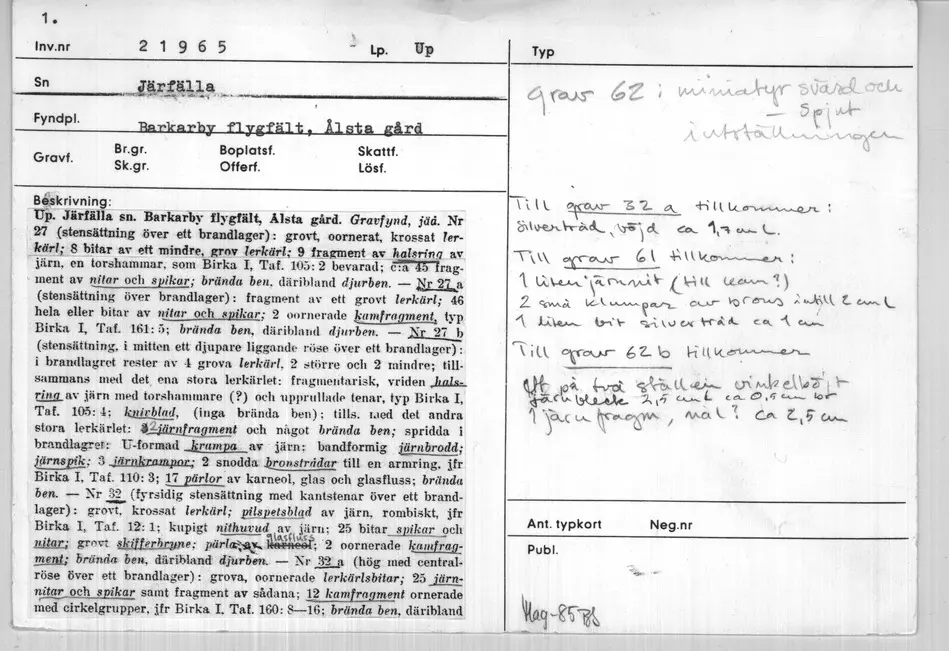 1.
Inv.nr 2 1 9 6 5 Lp. Up
Sn Järfälla
Fyndpl. Barkarby flygfält, Ålsta gård
Gravf. Br.gr. Boplatsf. Skattf.
Sk.gr. Offerf. Lösf.
Beskrivning:
Up. Järfälla sn. Barkarby flygfält, Ålsta gård. Gravfynd, jäå. Nr
27 (stensättning över ett brandlager): grovt, oornerat, krossat ler-
kärl; 8 bitar av ett mindre, grov lerkärl; 9 fragment av halsring av
järn, en torshammar, som Birka I, Taf. 105: 2 bevarad; c:a 45 frag-
ment av nitar och spikar; brända ben, däribland djurben. — Nr 27 a
(stensättning över brandlager): fragment av ett grovt lerkärl; 46
hela eller bitar av nitar och spikar; 2 oornerade kamfragment, typ
Birka I, Taf. 161: 5; brända ben, däribland djurben. — Nr 27 b
(stensättning, i mitten ett djupare liggande röse över ett brandlager):
i brandlagret rester av 4 grova lerkärl, 2 större och 2 mindre; till-
sammans med det ena stora lerkärlet: fragmentarisk, vriden hals-
ring av järn med torshammare (?) och upprullade tenar, typ Birka I,
Taf. 105: 4; knivblad, (inga brända ben); tills. med det andra
stora lerkärlet: 2 järnfragment och något brända ben; spridda i
brandlagret: U-formad krampa av järn; bandformig järnbrodd;
järnspik; 3 järnkrampor; 2 snodda bronstrådar till en armring, jfr
Birka I, Taf. 110: 3; 17 pärlor av karneol, glas och glasfluss; brända
ben. — Nr 32 (fyrsidig stensättning med kantstenar över ett brand-
lager): grovt, krossat lerkärl; pilspetsblad av järn, rombiskt, jfr
Birka I, Taf. 12: 1; kupigt nithuvud av järn; 25 bitar spikar och
glasfluss
nitar; grovt skifferbryne; pärla av karneol; 2 oornerade kamfrag-
ment; brända ben, däribland djurben. — Nr 32 a (hög med central-
röse över ett brandlager): grova, oornerade lerkärlsbitar; 25 järn-
nitar och spikar samt fragment av sådana; 12 kamfragment ornerade
med cirkelgrupper, jfr Birka I, Taf. 160: 8—16; brända ben, däribland
Typ
grav 62: miniatyr svärd och
— spjut
i utställningen
Till grav 32 a tillkommer:
Silvertråd, böjd ca 1,7 cm L.
Till grav 61 tillkommer:
1 liten järnnit (till kam?)
2 små klumpar av brons intill 2 cm L
1 liten bit silvertråd ca 1 cm
Till grav 62 b tillkommer
på två ställen vinkelböjt
järnbleck 2,5 cm L ca 0,5 cm br
1 järnfragm, nål? ca 2,5 cm
Ant. typkort Neg.nr
Publ.
Mag-85